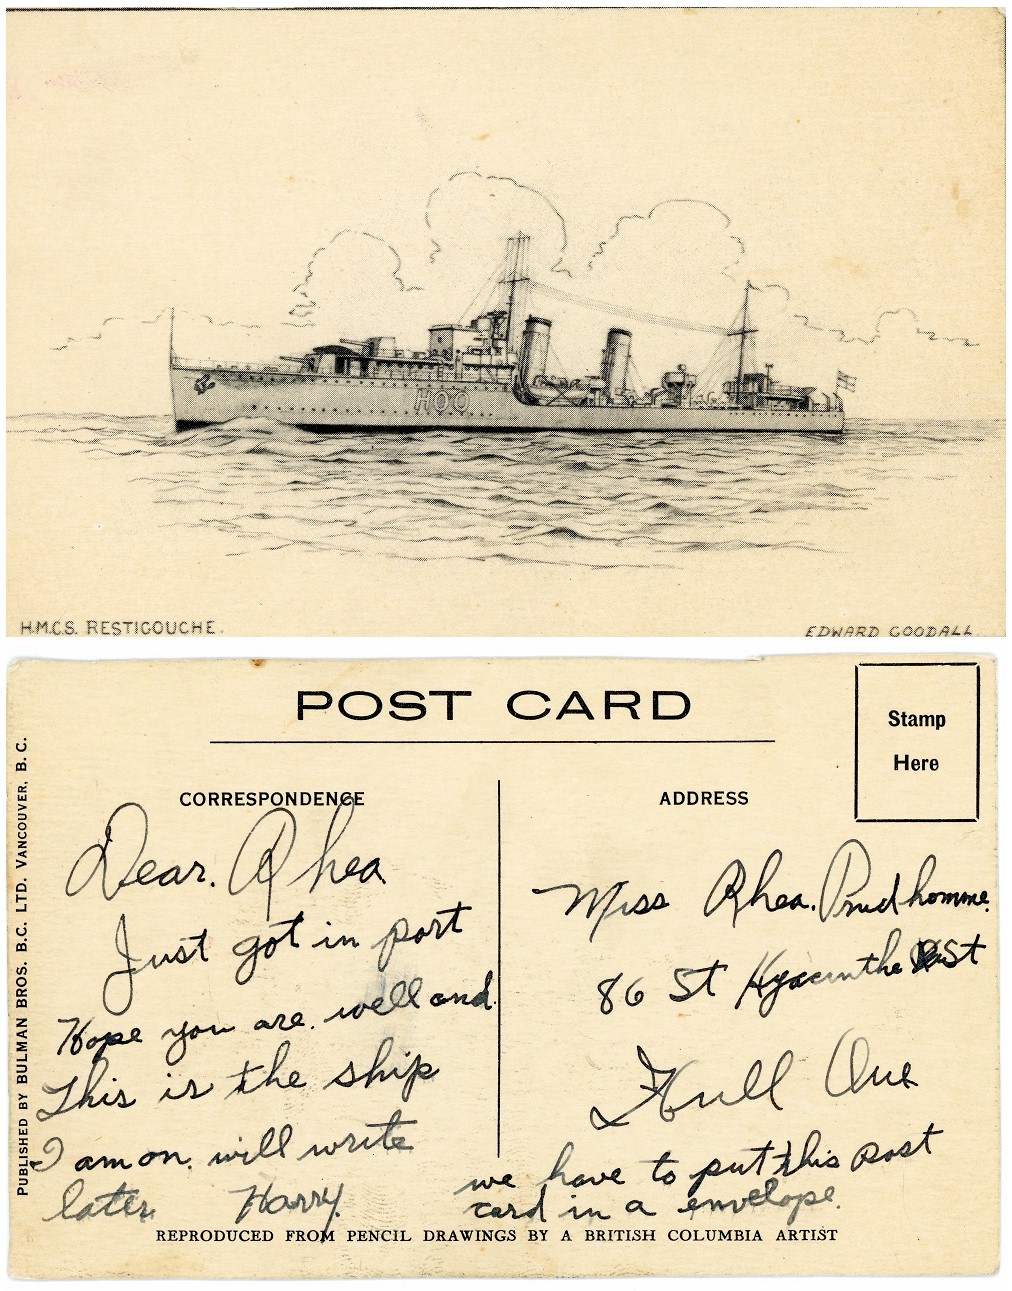 HOO
H.M.C.S. RESTIGOUCHE.
EDWARD GOODALL
POST CARD
Stamp
Here
PUBLISHED BY BULMAN BROS. B.C. LTD. VANCOUVER, B.C.
CORRESPONDENCE
Dear. Rhea
Just got in port
Hope you are. well and
This is the ship
I am on. will write
later. Harry.
ADDRESS
Miss Rhea. Prudhomme.
86 St Hyacinthe St
Hull Que
we have to put this post
card in a envelope.
REPRODUCED FROM PENCIL DRAWINGS BY A BRITISH COLUMBIA ARTIST